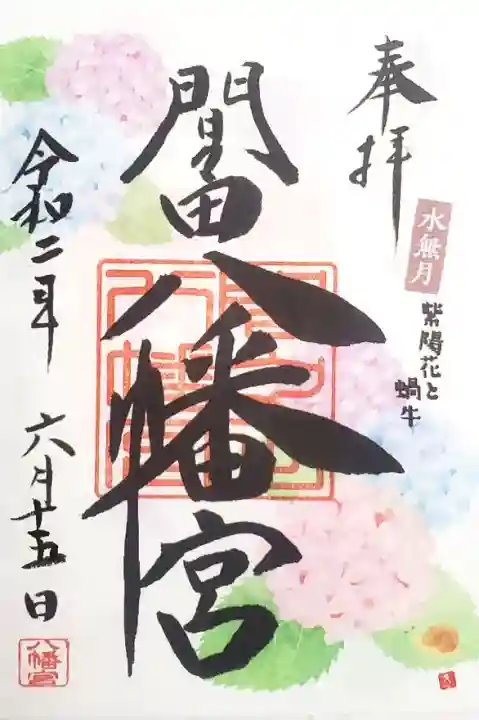 奉拝
水無月
紫陽花と
蝸牛
間々田
八幡宮
令和二年 六月十五日
八幡宮